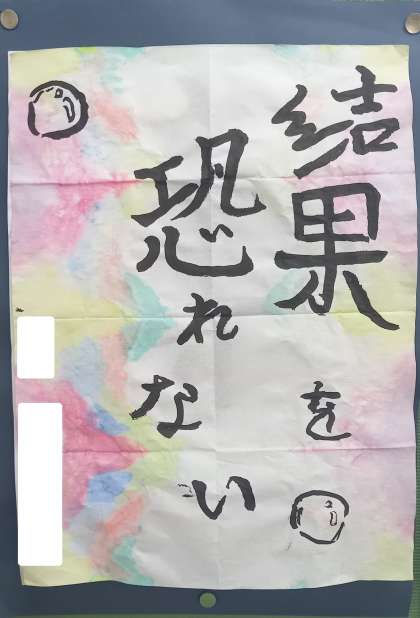 結果を
恐れない